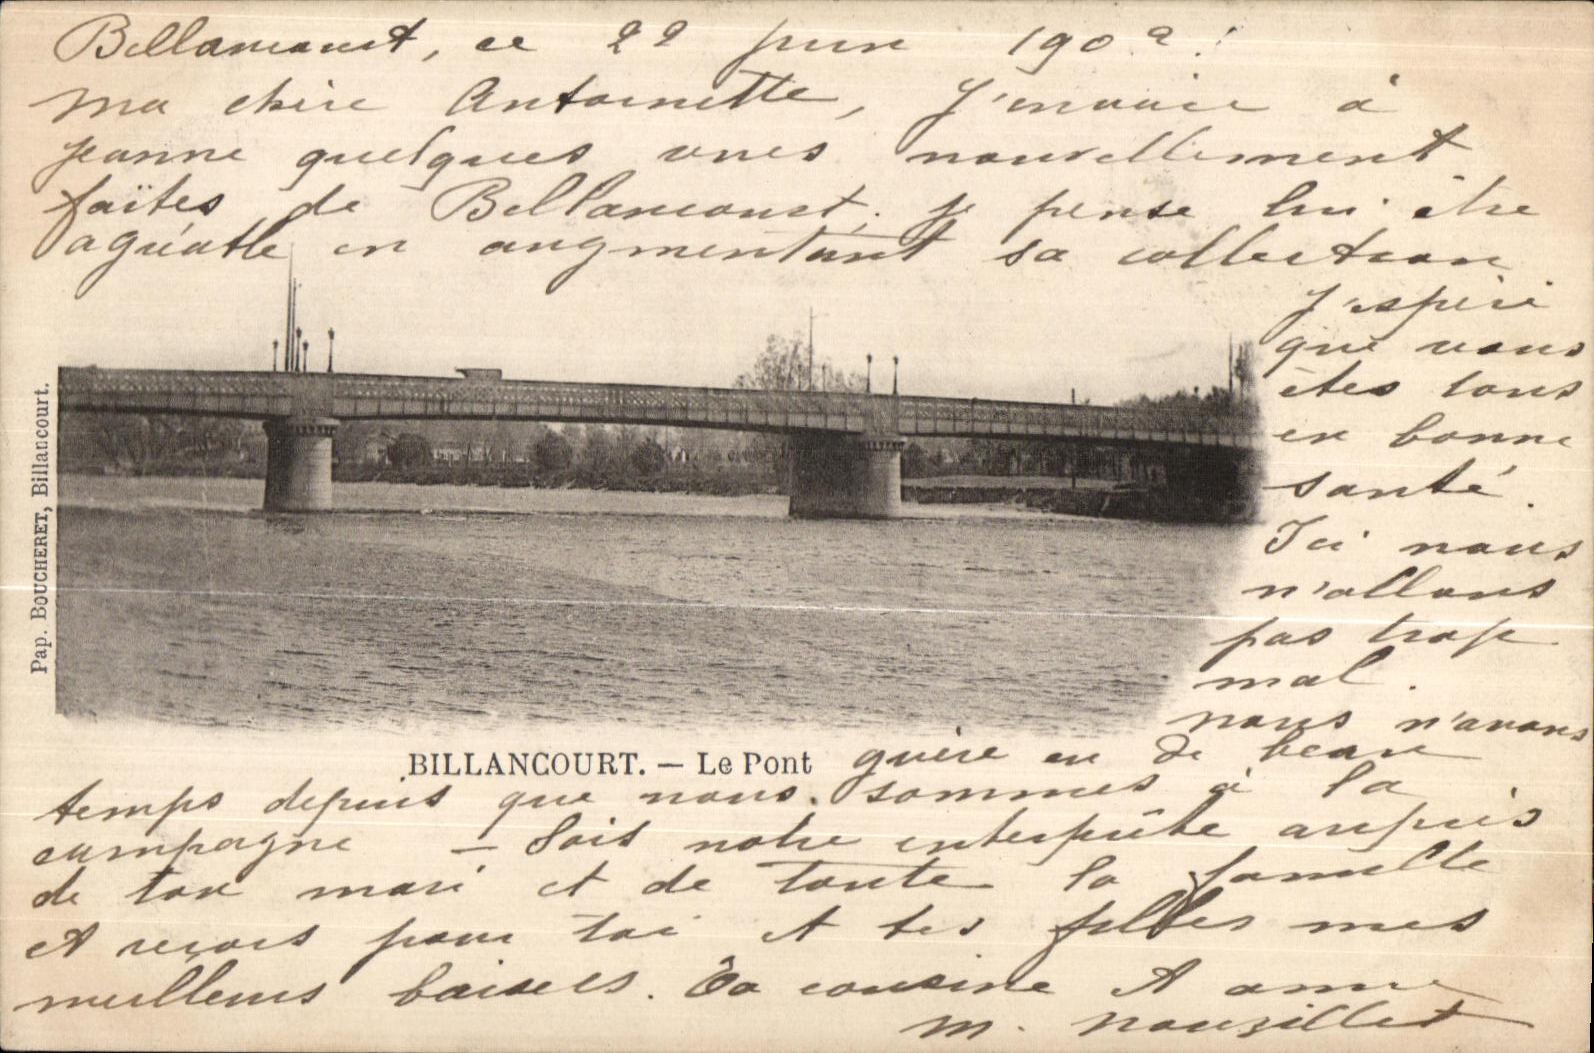 Billancourt, ce 22 juin 1902
Ma chère Antoinette, J'envoie à
Jeanne quelques vues nouvellement
faites de Billancourt. je pense lui être
agréable en augmentant sa collection.
J'espère
que vous
êtes tous
en bonne
santé.
Ici nous
n'allons
pas trop
mal.
nous n'avons
guère eu de beau
temps depuis que nous sommes à la
campagne — Sois notre interprète auprès
de ton mari et de toute la famille
et reçois pour toi et tes filles mes
meilleurs baisers. Ta cousine et amie
M. Nouzillet
BILLANCOURT. — Le Pont
Pap. BOUCHERET, Billancourt.